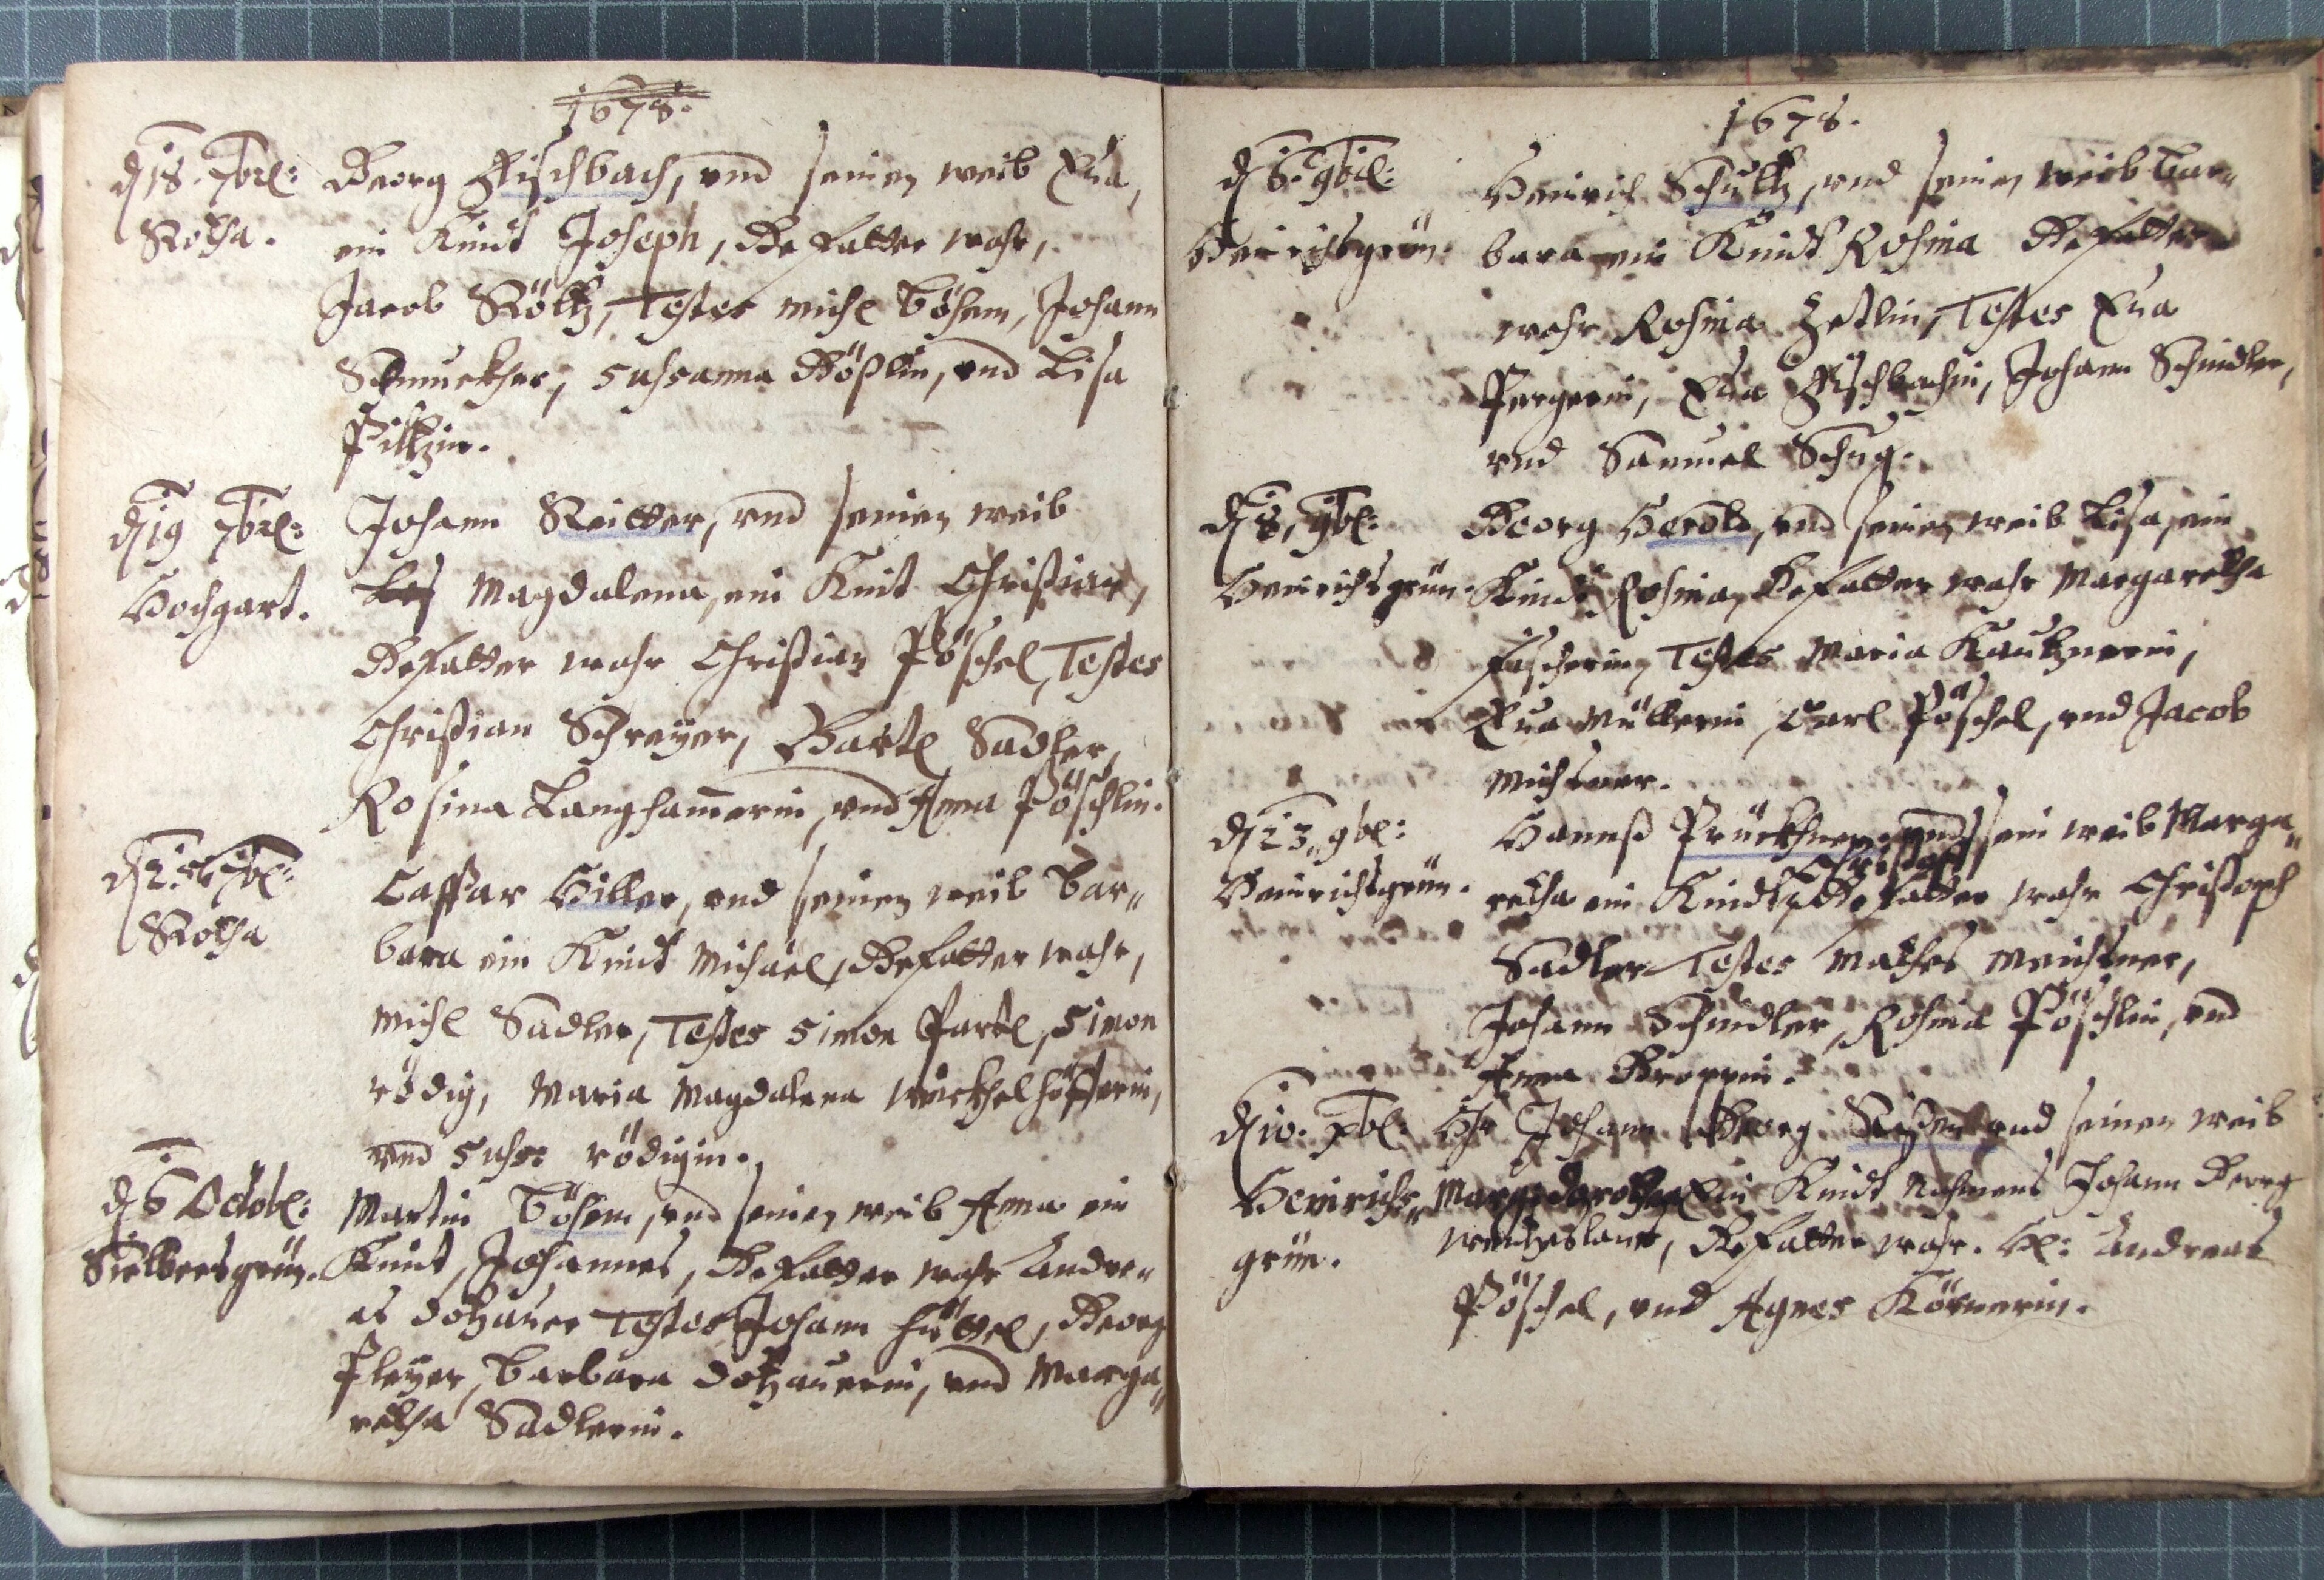 1678.
d 18. 7brl:
Rotha.
Georg Fischbach, vnd seinen weib Eua,
ein Kindt Joseph, Gefatter wahr,
Jacob Röltz, Testes Michl Böhem, Johann
Schmuckher, Susanna Gößlin, vnd Lisa
Piltzin.
d 19 7brl:
Hochgart.
Johann Reitter, vnd seinen weib
Magdalena, ein Kint Christian,
Gefatter wahr Christian Pöschel, Testes
Christian Schreyer, Bartl Sadler,
Rosina Langhamerin, vnd Anna Pöschlin.
7bl:
Rotha
Caspar Hiller, vnd seinen weib Bar„
bara ein Kindt Michäel, Gefatter wahr,
Michl Sadler, Testes Simon Partl, Simon
rödig, Maria Magdalena Winckhelhöfferin,
vnd Suss: rödigin.
d 6 Octobl:
Silbersgrün.
Martin Böhem, vnd seinen weib Anna ein
Kindt, Johannes, Gefatter wahr Andre„
as Dotzauer Testes Johann Hüttel, Georg
Pleyer, Barbara Dotzauerin, vnd Marga„
retha Sadlerin.
1678.
d 6. 9brl:
Heinrichsgrün.
Heinrich Schultz, vnd seinen weib Bar„
bara ein Kindt Rosina Gefatter
wahr Rosina Hetlin, Testes Eua
Pergerin, Eua Fischbachin, Johann Schindler,
vnd Samuel Schug.
d 8, 9bl:
Heinrichsgrün.
Georg Herold, vnd seinen weib Lisa, ein
Kindt Rosina, Gefatter wahr Margaretha
Fischerin, Testes Maria Kautznerin,
Eua Müllerin, Carl Pöschel, vnd Jacob
Michsner.
d 23, 9bl:
Heinrichsgrün.
Hannß Prückhner, vnd sein weib Marga„
Christoff
retha ein Kindt, Gefatter wahr Christoph
Sadler Testes Mathes Meichsner,
Johann Schindler, Rosina Pöschlin, vnd
Anna Groppin.
d 10. xbl:
Heinrichs„
grün.
Hr Johann Georg vnd seinen weib
Marg: Dorothea Ein Kindt Nahmens Johann Georg
Wentzeslaus, Gefatter wahr. Hl: Andreas
Pöschel, vnd Agnes Körnerin.